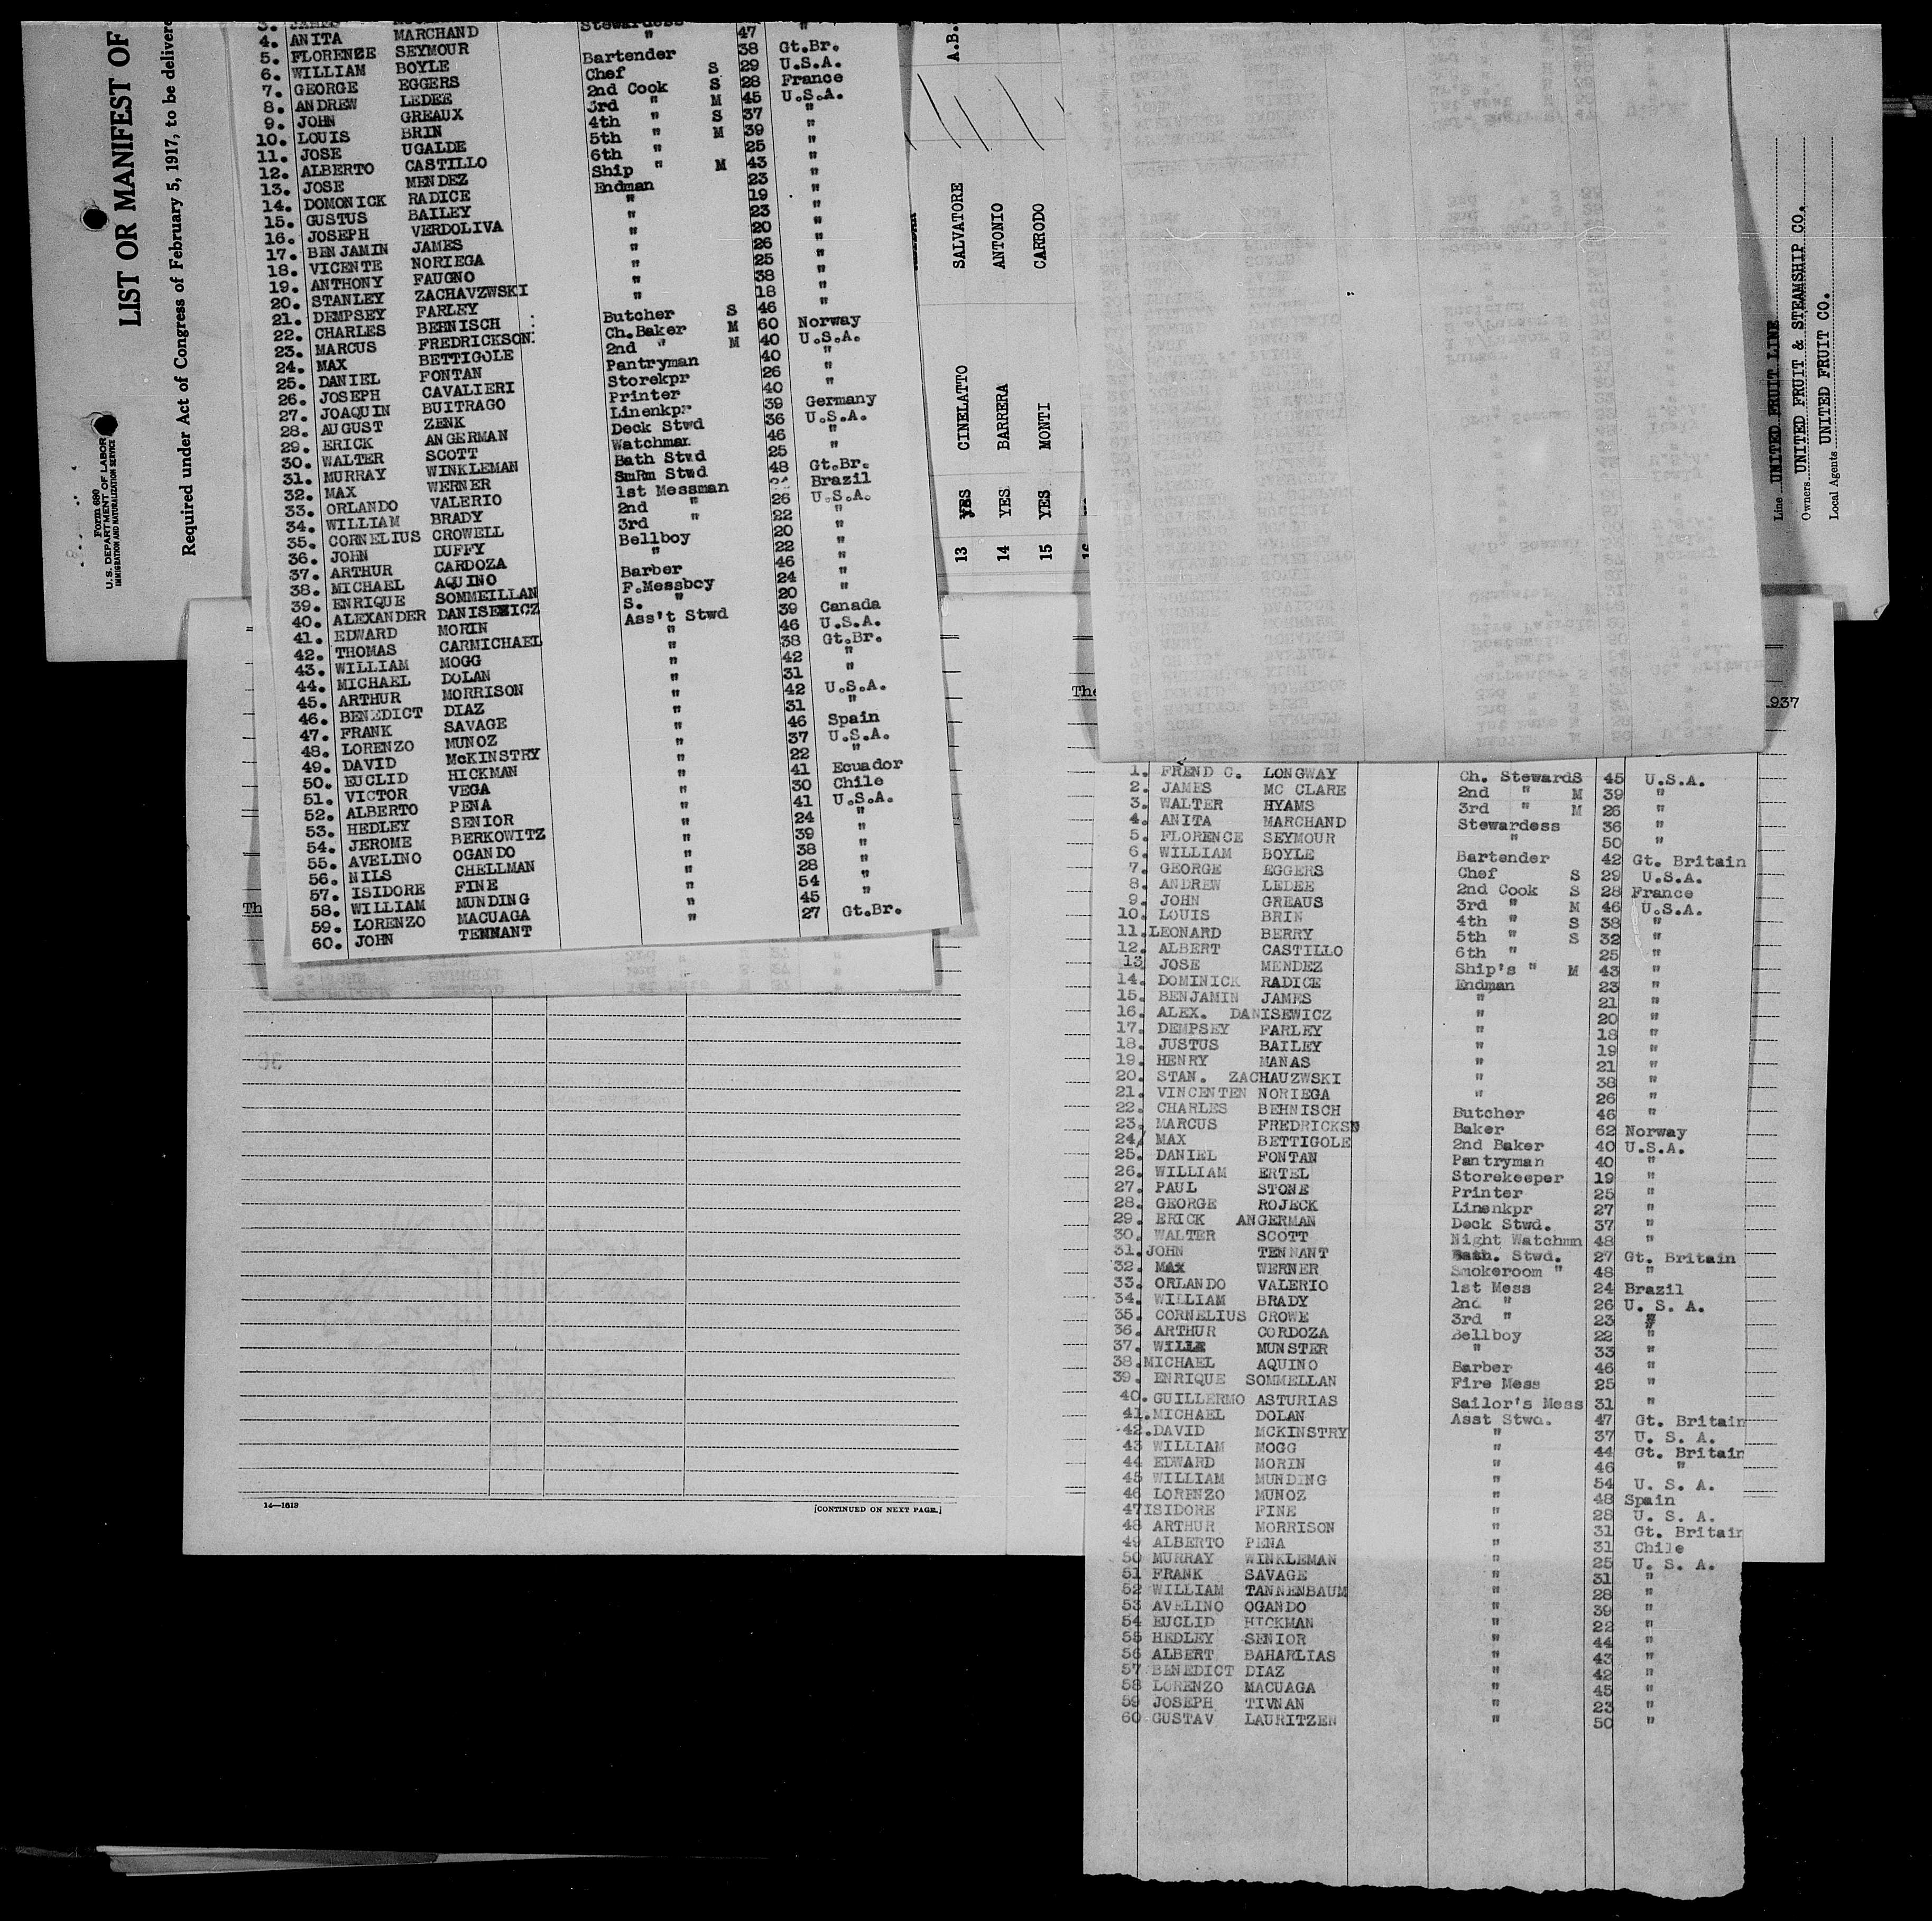 LIST OR MANIFEST OF
Required under Act of Congress of February 5, 1917, to be delivere
Form 680
U.S. DEPARTMENT OF LABOR
IMMIGRATION AND NATURALIZATION SERVICE
4. ANITA MARCHAND Stewardess
5. FLORENCE SEYMOUR " 47 "
6. WILLIAM BOYLE Bartender 38 Gt.Br.
7. GEORGE EGGERS Chef S 29 U.S.A.
8. ANDREW LEDEE 2nd Cook S 28 France
9. JOHN GREAUX 3rd " M 45 U.S.A.
10. LOUIS BRIN 4th " S 37 "
11. JOSE UGALDE 5th " M 39 "
12. ALBERTO CASTILLO 6th " 25 "
13. JOSE MENDEZ Ship " M 43 "
14. DOMONICK RADICE Endman 23 "
15. GUSTUS BAILEY " 19 "
16. JOSEPH VERDOLIVA " 23 "
17. BENJAMIN JAMES " 20 "
18. VICENTE NORIEGA " 26 "
19. ANTHONY FAUGNO " 25 "
20. STANLEY ZACHAVZWSKI " 38 "
21. DEMPSEY FARLEY " 18 "
22. CHARLES BEHNISCH Butcher S 46 "
23. MARCUS FREDRICKSON Ch.Baker M 60 Norway
24. MAX BETTIGOLE 2nd " M 40 U.S.A.
25. DANIEL FONTAN Pantryman 40 "
26. JOSEPH CAVALIERI Storekpr 26 "
27. JOAQUIN BUITRAGO Printer 40 "
28. AUGUST ZENK Linenkpr 39 Germany
29. ERICK ANGERMAN Deck Stwd 36 U.S.A.
30. WALTER SCOTT Watchman 46 "
31. MURRAY WINKLEMAN Bath Stwd 25 "
32. MAX WERNER SmRm Stwd 48 Gt.Br.
33. ORLANDO VALERIO 1st Messman Brazil
34. WILLIAM BRADY 2nd " 26 U.S.A.
35. CORNELIUS CROWELL 3rd " 22 "
36. JOHN DUFFY Bellboy 20 "
37. ARTHUR CARDOZA " 22 "
38. MICHAEL AQUINO Barber 46 "
39. ENRIQUE SOMMEILLAN F.Messboy 24 "
40. ALEXANDER DANISEWICZ S. " 20 "
41. EDWARD MORIN Ass't Stwd 39 Canada
42. THOMAS CARMICHAEL " 46 U.S.A.
43. WILLIAM MOGG " 38 Gt.Br.
44. MICHAEL DOLAN " 42 "
45. ARTHUR MORRISON " 31 "
46. BENEDICT DIAZ " 42 U.S.A.
47. FRANK SAVAGE " 31 "
48. LORENZO MUNOZ " 46 Spain
49. DAVID McKINSTRY " 37 U.S.A.
50. EUCLID HICKMAN " 22 "
51. VICTOR VEGA " 41 Ecuador
52. ALBERTO PENA " 30 Chile
53. HEDLEY SENIOR " 41 U.S.A.
54. JEROME BERKOWITZ " 24 "
55. AVELINO OGANDO " 39 "
56. NILS CHELLMAN " 38 "
57. ISIDORE FINE " 28 "
58. WILLIAM MUNDING " 54 "
59. LORENZO MACUAGA " 45 "
60. JOHN TENNANT " 27 Gt.Br.
Th
14—1613
[CONTINUED ON NEXT PAGE.]
A.B.
13 YES CINELATTO SALVATORE
14 YES BARRERA ANTONIO
15 YES MONTI CARRODO
16
Line UNITED FRUIT LINE
Owners UNITED FRUIT & STEAMSHIP CO.
Local Agents UNITED FRUIT CO.
The
937
1. FREND C. LONGWAY Ch. Steward S 45 U.S.A.
2. JAMES MC CLARE 2nd " M 39 "
3. WALTER HYAMS 3rd " M 26 "
4. ANITA MARCHAND Stewardess 36 "
5. FLORENCE SEYMOUR " 50 "
6. WILLIAM BOYLE Bartender 42 Gt. Britain
7. GEORGE EGGERS Chef S 29 U.S.A.
8. ANDREW LEDEE 2nd Cook S 28 France
9. JOHN GREAUS 3rd " M 46 U.S.A.
10. LOUIS BRIN 4th " S 38 "
11. LEONARD BERRY 5th " S 32 "
12. ALBERT CASTILLO 6th " 25 "
13 JOSE MENDEZ Ship's " M 43 "
14. DOMINICK RADICE Endman 23 "
15. BENJAMIN JAMES " 21 "
16. ALEX. DANISEWICZ " 20 "
17. DEMPSEY FARLEY " 18 "
18. JUSTUS BAILEY " 19 "
19. HENRY MANAS " 21 "
20. STAN. ZACHAUZWSKI " 38 "
21. VINCENTEN NORIEGA " 26 "
22. CHARLES BEHNISCH Butcher 46 "
23. MARCUS FREDRICKSN Baker 62 Norway
24/ MAX BETTIGOLE 2nd Baker 40 U.S.A.
25. DANIEL FONTAN Pantryman 40 "
26. WILLIAM ERTEL Storekeeper 19 "
27. PAUL STONE Printer 25 "
28. GEORGE ROJECK Linenkpr 27 "
29. ERICK ANGERMAN Deck Stwd. 37 "
30. WALTER SCOTT Night Watchmn 48 "
31. JOHN TENNANT Bath. Stwd. 27 Gt. Britain
32. MAX WERNER Smokeroom " 48 "
33. ORLANDO VALERIO 1st Mess 24 Brazil
34. WILLIAM BRADY 2nd " 26 U. S. A.
35. CORNELIUS CROWE 3rd " 23 "
36. ARTHUR CORDOZA Bellboy 22 "
37. WILLE MUNSTER " 33 "
38. MICHAEL AQUINO Barber 46 "
39. ENRIQUE SOMMELLAN Fire Mess 25 "
40. GUILLERMO ASTURIAS Sailor's Mess 31 "
41. MICHAEL DOLAN Asst Stwd. 47 Gt. Britain
42. DAVID MCKINSTRY " 37 U. S. A.
43 WILLIAM MOGG " 44 Gt. Britain
44 EDWARD MORIN " 46 "
45 WILLIAM MUNDING " 54 U. S. A.
46 LORENZO MUNOZ " 48 Spain
47 ISIDORE FINE " 28 U. S. A.
48 ARTHUR MORRISON " 31 Gt. Britain
49 ALBERTO PENA " 31 Chile
50 MURRAY WINKLEMAN " 25 U. S. A.
51 FRANK SAVAGE " 31 "
52 WILLIAM TANNENBAUM " 28 "
53 AVELINO OGANDO " 39 "
54 EUCLID HICKMAN " 22 "
55 HEDLEY SENIOR " 44 "
56 ALBERT BAHARLIAS " 43 "
57 BENEDICT DIAZ " 42 "
58 LORENZO MACUAGA " 45 "
59 JOSEPH TIVNAN " 23 "
60 GUSTAV LAURITZEN " 50 "